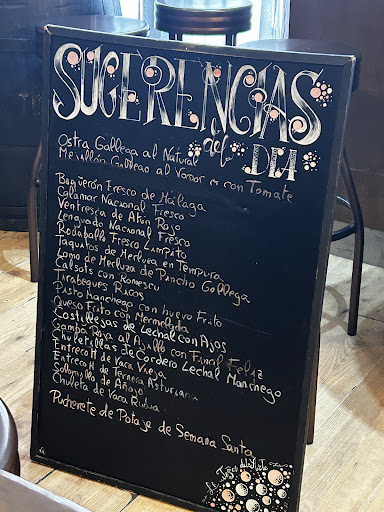 SUGERENCIAS
de la
DIA
Ostra Gallega al Natural
Mejillón Gallego al Vapor o con Tomate
Boquerón Fresco de Málaga
Calamar Nacional Fresco
Ventresca de Atún Rojo
Lenguado Nacional Fresco
Rodaballo Fresco Limpito
Taquitos de Merluza en Tempura
Lomo de Merluza de Pancho Gallega
Calsots con Romescu
Tirabeques Ricos
Pisto Manchego con huevo Frito
Queso Frito con Mermelada
Costillejas de Lechal con Ajos
Gamba Roja al Ajillo con Final Feliz
Chuletillas de Cordero Lechal Manchego
Entrecot de Vaca Vieja
Entrecot de Ternera Asturiana
Solomillo de Añojo
Chuleta de Vaca Rubia
Pucherete de Potaje de Semana Santa